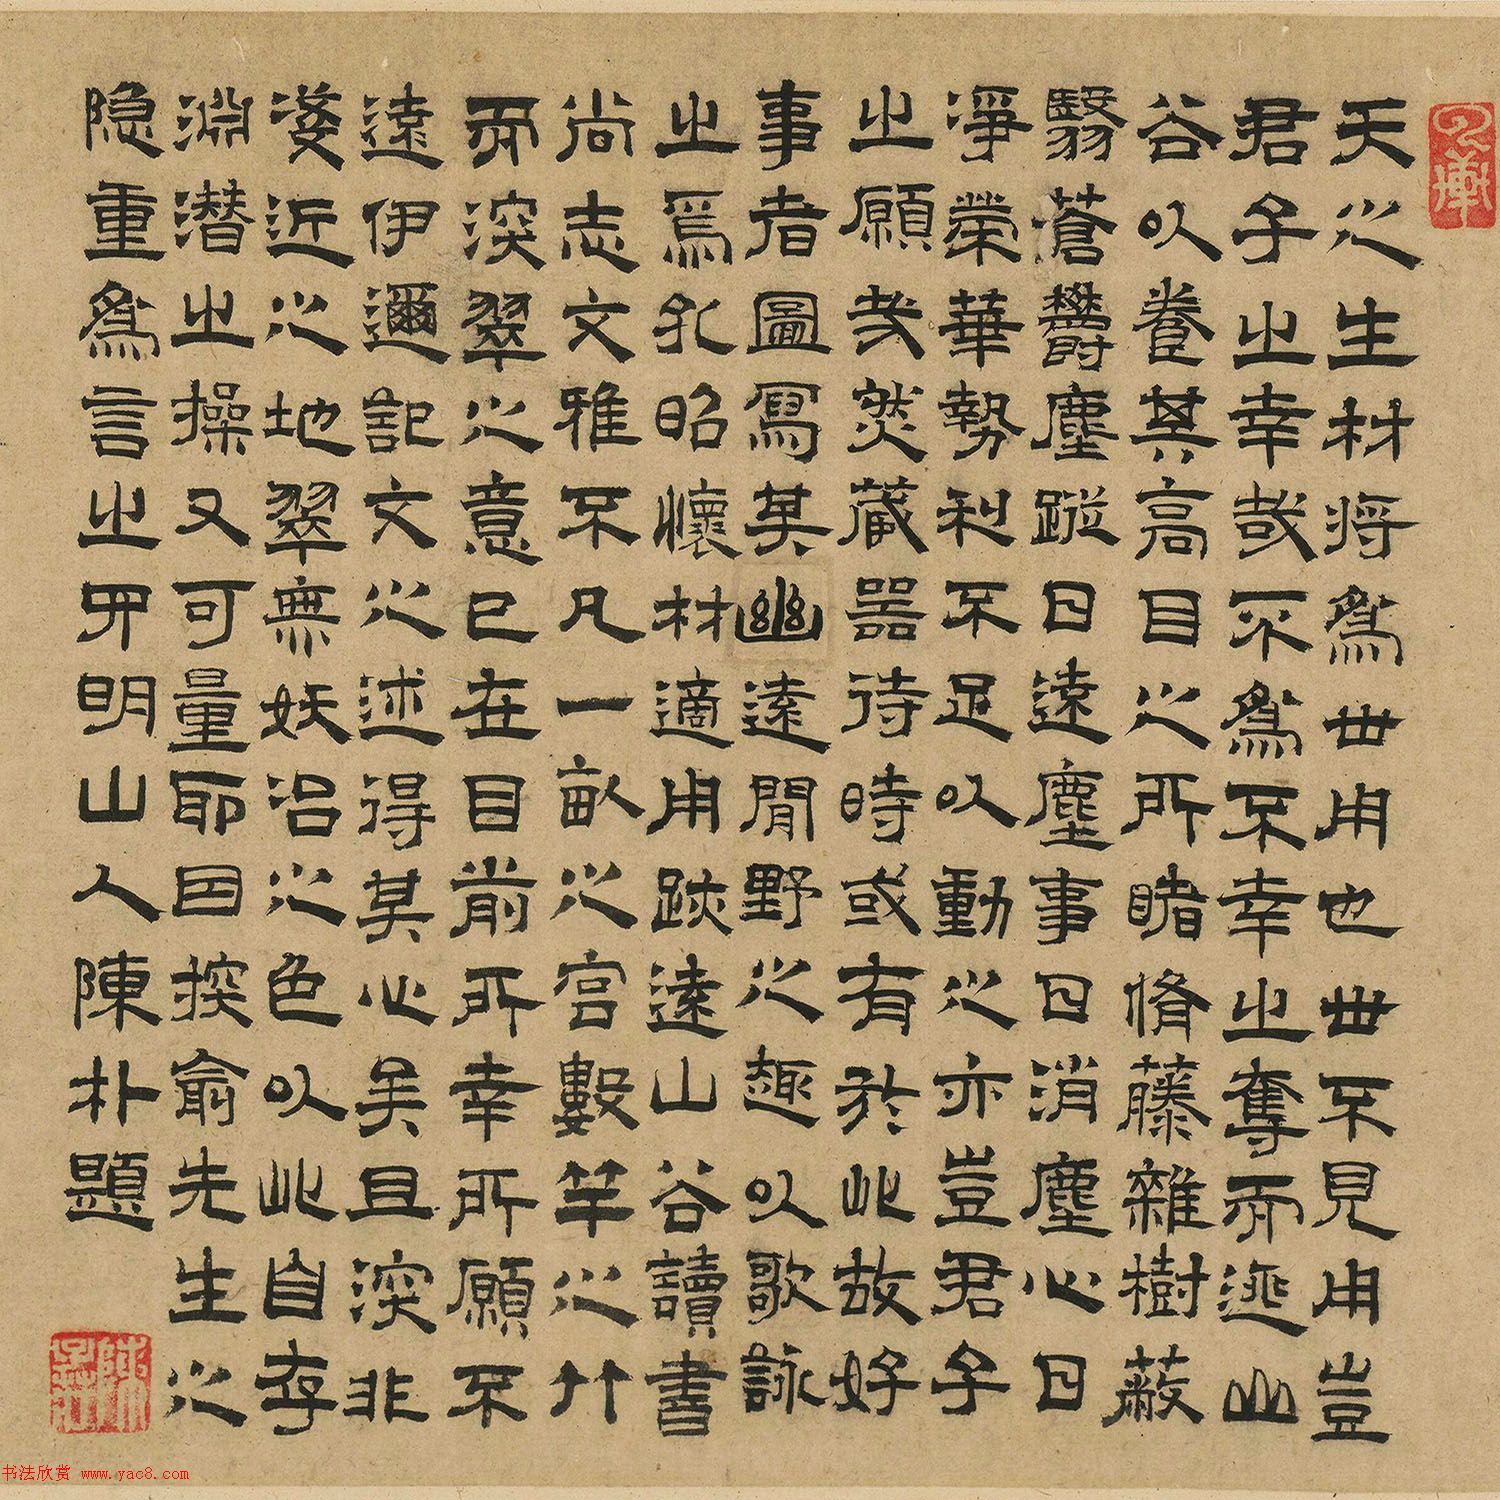 天之生材將爲世用也世不見用豈
君子之幸哉不爲不幸之奪而逃山
谷以養其高目之所睹脩藤雜樹蔽
翳蒼鬱塵蹤日遠塵事日消塵心日
淨榮華勢利不足以動之亦豈君子
之願哉然藏器待時或有於此故好
事者圖寫其幽遠閒野之趣以歌詠
之焉孔昭懷材適用跡遠山谷讀書
尚志文雅不凡一畝之宮數竿之竹
而深翠之意已在目前所幸所願不
遠伊邇記文之述得其心矣且深非
淺近之地翠無妖冶之色以此自存
淵潛之操又可量耶因揆俞先生之
隐重爲言之𠕋明山人陳朴題
书法欣赏 www.yac8.com